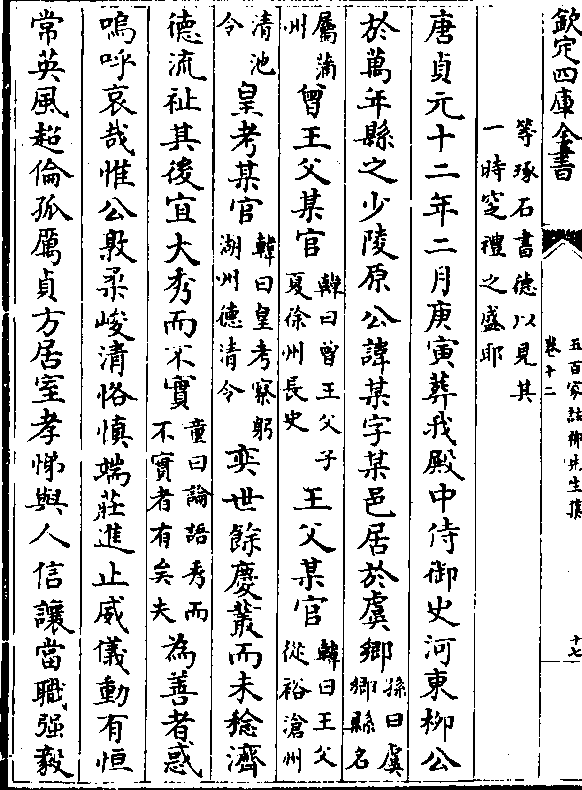 欽定四庫全書
五百家註柳先生集
卷十二
十七
等琢石書德以見其
一時窆禮之盛耶
唐貞元十二年二月庚寅葬我殿中侍御史河東柳公
於萬年縣之少陵原公諱某字某邑居於虞鄉孫曰虞鄉縣名
屬蒲州曾王父某官韓曰曾王父子夏徐州長史王父某官韓曰王父從裕滄州
清池令皇考某官韓曰皇考察躬湖州德清令奕世餘慶叢而未稔濟
德流祉其後宜大秀而不實童曰論語秀而不實者有矣夫為善者惑
嗚呼哀哉惟公敦柔峻清恪慎端莊進止威儀動有恒
常英風超倫孤厲貞方居室孝悌與人信讓當職强毅